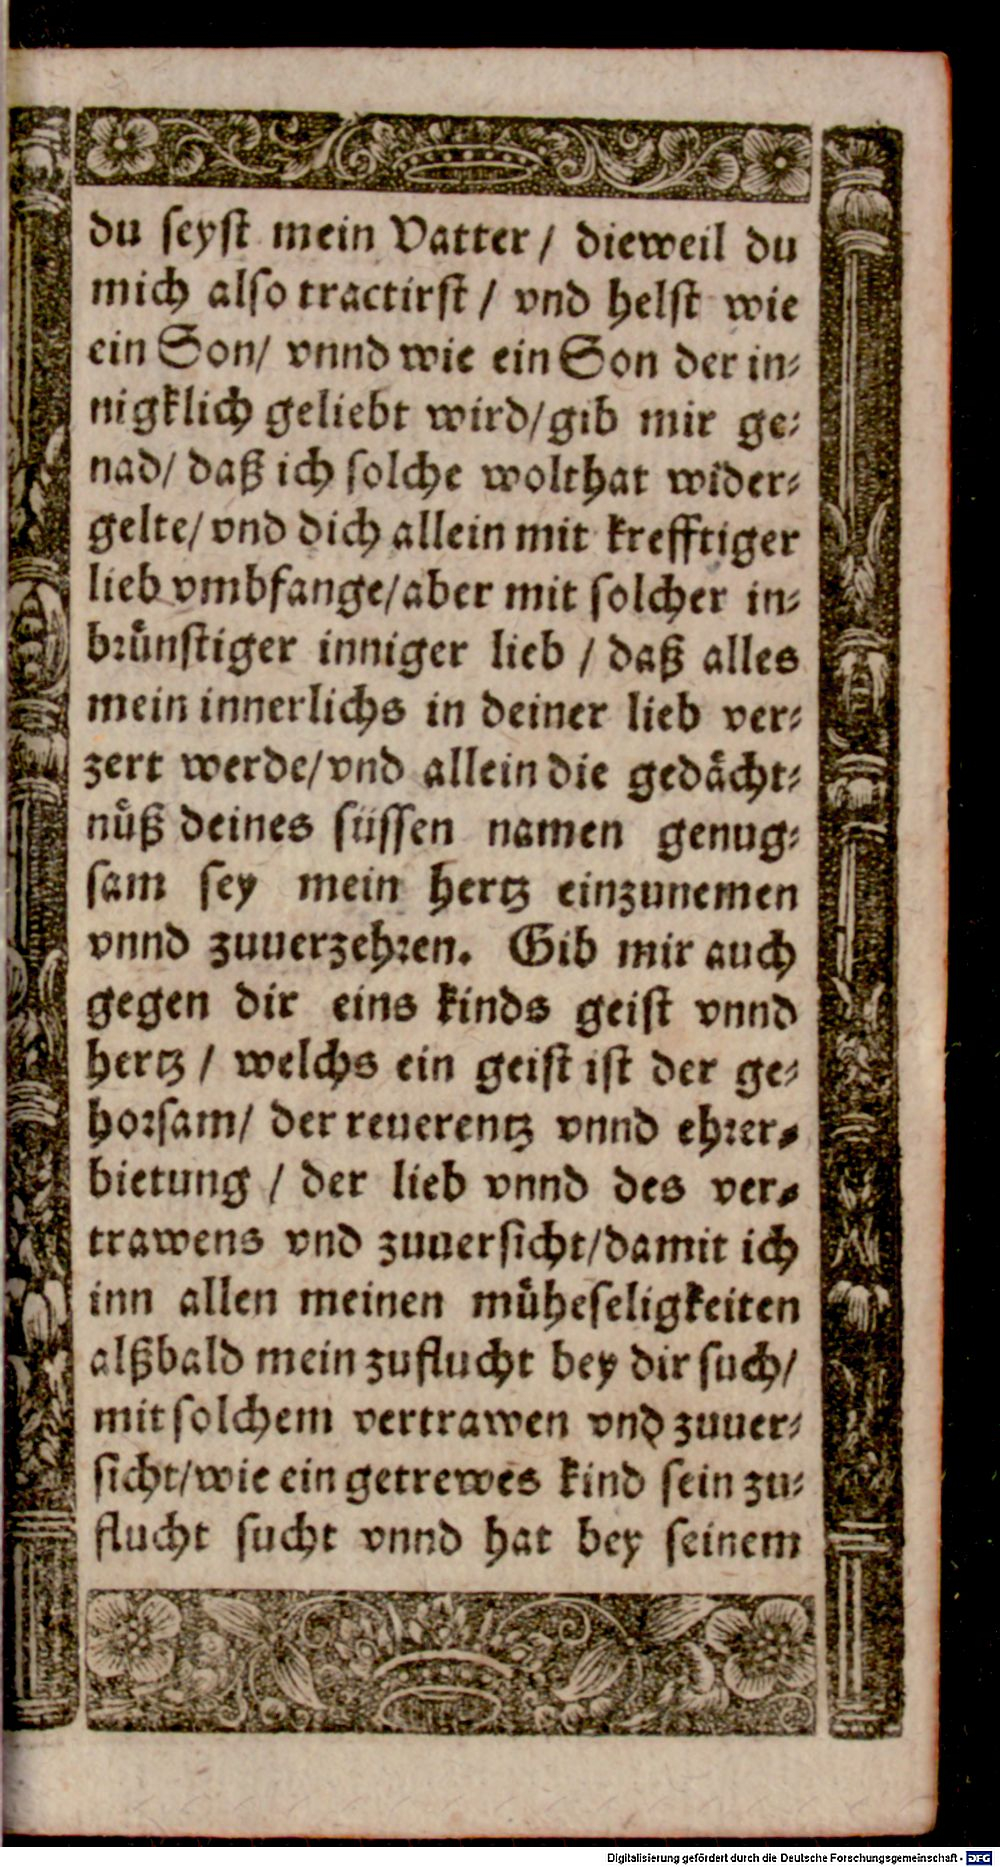 du seyst mein Vatter / dieweil du
mich also tractirst / vnd helst wie
ein Son/ vnnd wie ein Son der in-
nigklich geliebt wird/gib mir ge-
nad/ daß ich solche wolthat wider-
gelte/ vnd dich allein mit krefftiger
lieb vmbfange/aber mit solcher in-
brünstiger inniger lieb / daß alles
mein innerlichs in deiner lieb ver-
zert werde/vnd allein die gedächt-
nüß deines süssen namen genug-
sam sey mein hertz einzunemen
vnnd zuuerzehren. Gib mir auch
gegen dir eins kinds geist vnnd
hertz / welchs ein geist ist der ge-
horsam/ der reuerentz vnnd ehrer-
bietung / der lieb vnnd des ver-
trawens vnd zuuersicht/damit ich
inn allen meinen müheseligkeiten
alßbald mein zuflucht bey dir such/
mit solchem vertrawen vnd zuuer-
sicht/wie ein getrewes kind sein zu-
flucht sucht vnnd hat bey seinem
Digitalisierung gefördert durch die Deutsche Forschungsgemeinschaft - DFG